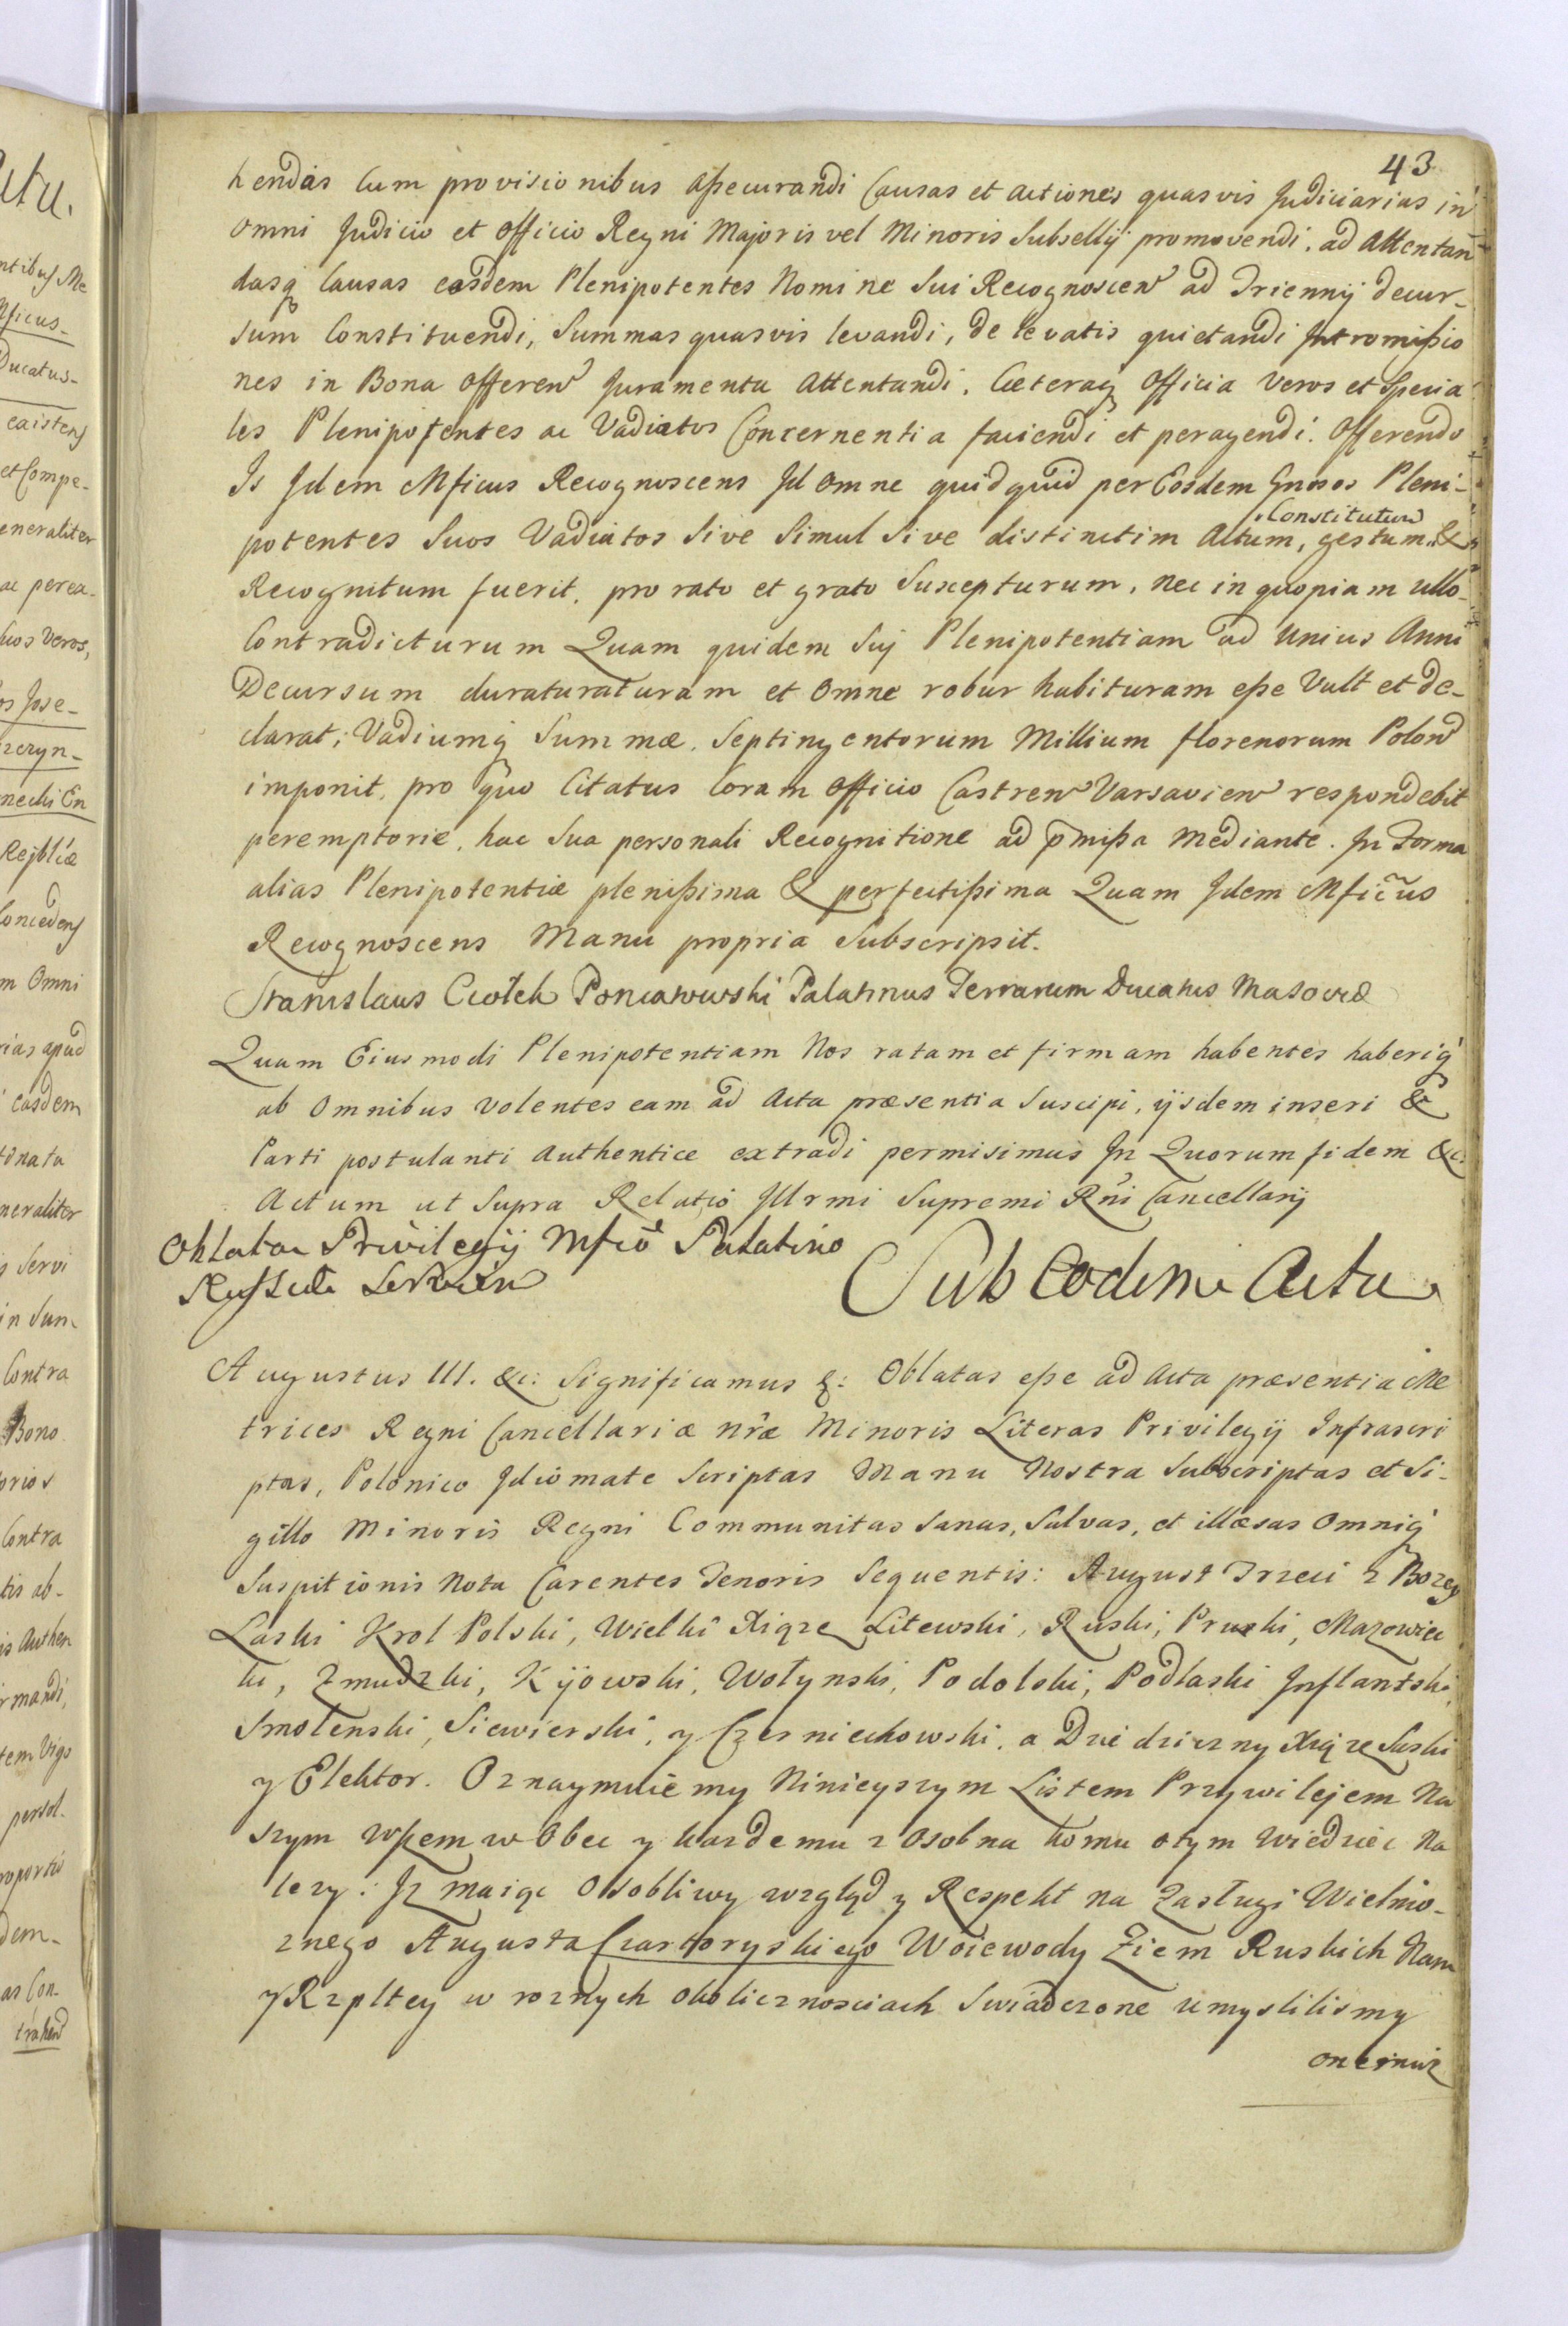 43
hendas Cum provisionibus assecurandi Causas et actiones quasvis Judiciarias in
omni Judicio et officio Regni Majoris vel Minoris Subsellij promovendi, ad Attentan
dasq Causas easdem Plenipotentes Nomine Sui Recognoscen ad Triennij decur-
sum Constituendi, Summas quasvis levandi, de levatis quietandi Intromissio
nes in Bona offeren Juramenta Attentandi. Cæteraq Officia veros et Specia
les Plenipotentes ac Vadiatos Concernentia faciendi et peragendi. Offerendo
Is Idem Mficus Recognoscens Id omne quidquid per Eosdem Gnosos Pleni-
Constitutum
potentes Suos Vadiatos Sive Simul Sive distinctim Actum, gestum, &
Recognitum fuerit, pro rato et grato Suscepturum, nec in quopiam ullo
Contradicturum Quam quidem Sui Plenipotentiam ad unius Anni
Decursum duraturaturam et omne robur habituram esse Vult et de-
clarat; Vadiumq Summæ Septingentorum Millium florenorum Polon
imponit, pro quo Citatus Coram officio Castren Varsavien respondebit
peremptorie, hac Sua personali Recognitione ad pmissa Mediante. In Forma
alias Plenipotentiæ plenissima & perfectissima Quam Idem Mficus
Recognoscens Manu propria Subscripsit.
Stanislaus Ciołek Poniatowski Palatinus Terrarum Ducatus Masoviæ
Quam Eiusmodi Plenipotentiam Nos ratam et firmam habentes haberiq
ab omnibus volentes eam ad Acta præsentia Suscipi, ijsdem inseri &
Parti postulanti Authentice extradi permisimus In Quorum fidem &c:
Actum ut Supra Relatio Illrmi Supremi Rni Cancellarij
Oblata Privilegij Mfico Palatino
Russiæ Servien
Sub Eodem Actu
Augustus III. &c: Significamus &: Oblatas esse ad Acta præsentia Me
trices Regni Cancellariæ nræ Minoris Literas Privilegij Infrascri
ptas, Polonico Idiomate Scriptas Manu Nostra Subscriptas et Si-
gillo Minoris Regni Communitas Sanas, Salvas, et illæsas Omniq
Suspitionis Nota Carentes Tenoris Sequentis: August Trzeci z Bozey
Laski Krol Polski, Wielki Xiąze Litewski, Ruski, Pruski, Mazowiec
ki, Zmudzki, Kijowski, Wołynski, Podolski, Podlaski Inflantski,
Smolenski, Siewierski, y Czerniechowski, a Dziedziczny Xiąze Saski
y Elektor. Oznaymuiemy Ninieyszym Listem Przywilejem Na
szym wszem w Obec y kazdemu z osobna komu otym wiedziec Na
lezy: Iz maiąc Osobliwy wzgląd y Respekt na Zasługi Wielmo-
znego Augusta Czartoryskiego Woiewody Ziem Ruskich Nam
y Rzpltey w roznych okolicznosciach Swiadczone umyslilismy
onemuz